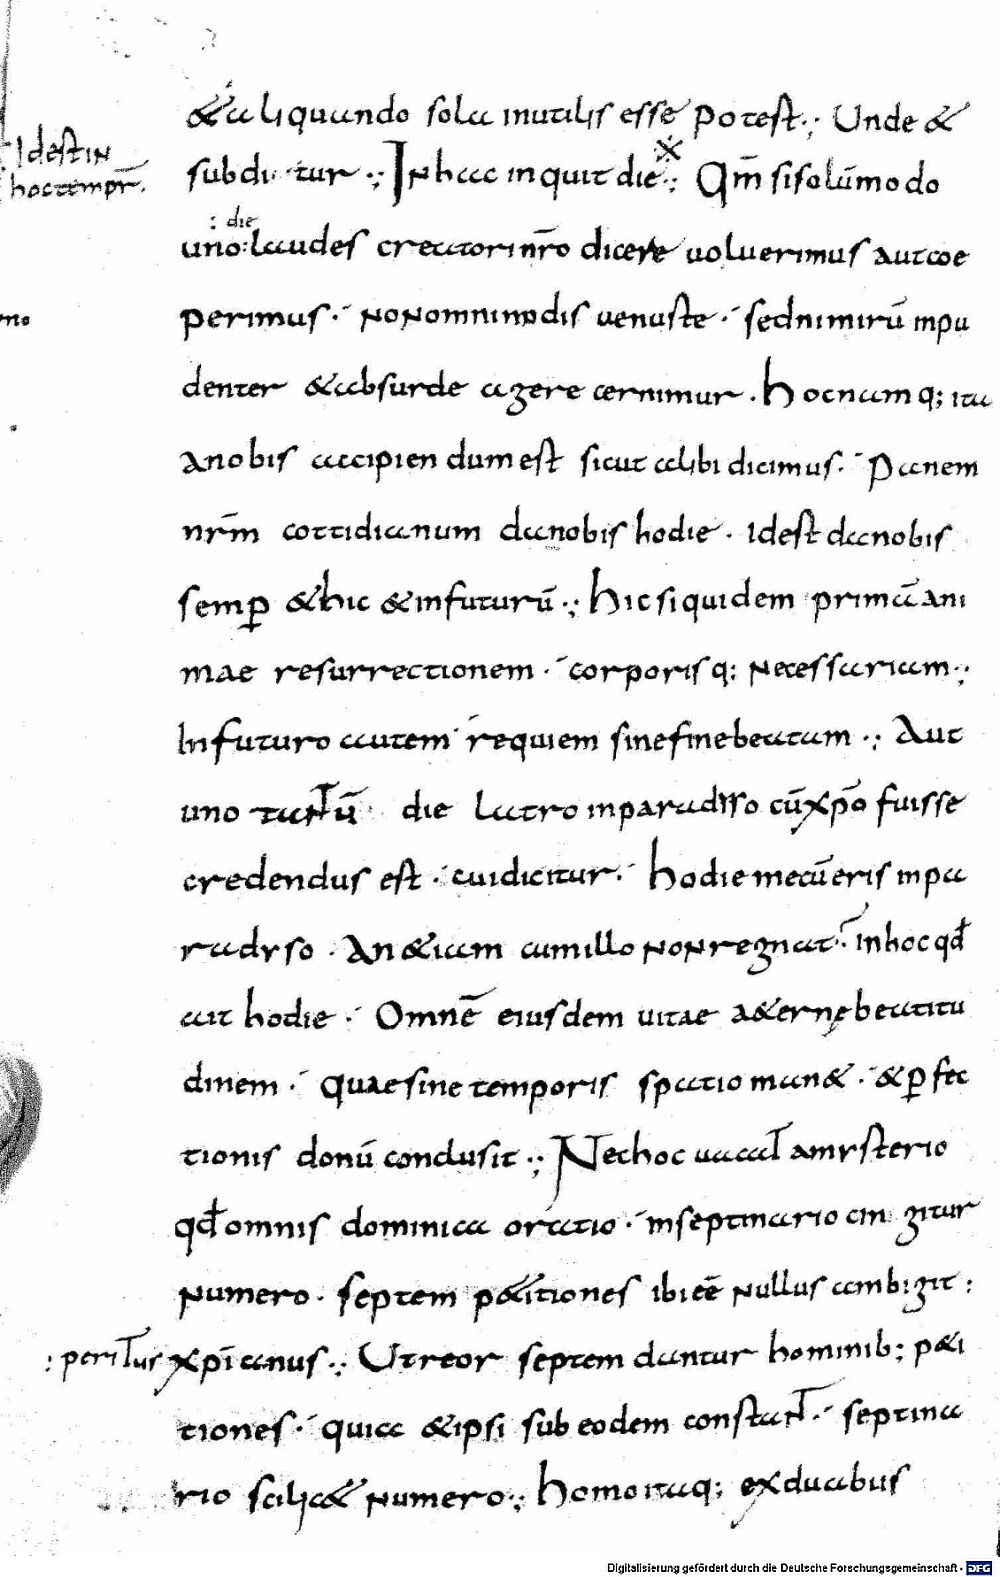 & aliquando sola inutilis esse potest·,· Unde &
Idest in
hoc tempr̄.
subditur ·,· In hac inquit die ·,· Qm̄ si solūmodo
: die
uno: laudes creatori nr̄o dicere uoluerimus aut coe
perimus · non omnimodis uenuste · sed nimirū inpu
denter & absurde agere cernimur · hoc namq; ita
a nobis accipiendum est sicut alibi dicimus · Panem
nr̄m cottidianum da nobis hodie · Idest da nobis
semꝑ & hic & in futurū ·,· hic siquidem primā ani
mae resurrectionem · corporisq; necessariam ·,·
In futuro autem requiem sine fine beatam ·,· Aut
uno tantū die latro in paradiso cū xp̄o fuisse
credendus est · cui dicitur · hodie mecū eris in pa
radyso · An &iam cum illo non regnat · in hoc qd̄
ait hodie · Omnē eiusdem uitae a&ernę beatitu
dinem · quae sine temporis spatio man& · & ꝑfec
tionis donū conclusit ·,· Nec hoc uacat a mysterio
qd̄ omnis dominica oratio · in septinario cingitur
numero · septem p&itiones ibi eē nullus ambigit :
: peritus
xp̄ianus ·,· Ut reor septem dantur hominib; p&i
tiones · quia & ipsi sub eodem constant · septina
rio scilic& numero ·,· homo itaq; ex duabus
Digitalisierung gefördert durch die Deutsche Forschungsgemeinschaft - DFG